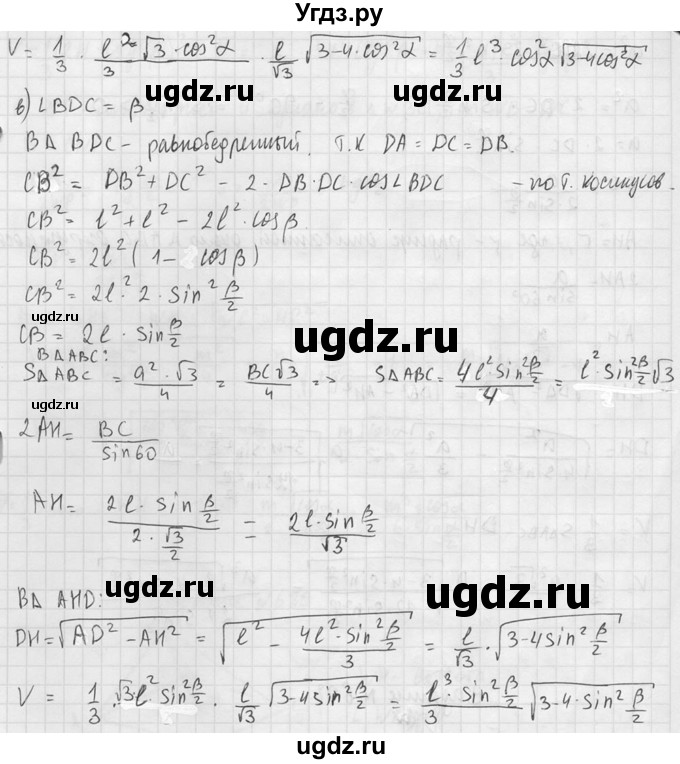 Угдз.ру
V = 1/3 · l²·√3·cos²α/3 · l/√3 √(3-4·cos²α) = 1/3 l³·cos²α √(3-4cos²α)
ugdz.ru ugdz.ru
в) ∠BDC = β
В Δ BDC - равнобедренный. т.к DA = DC = DB.
CB² = DB² + DC² - 2·DB·DC·cos∠BDC - по т. косинусов.
ugdz.ru
CB² = l² + l² - 2l²·cosβ
CB² = 2l²(1 - cosβ)
CB² = 2l²·2·sin² β/2
ugdz.ru
ugdz.ru
CB = 2l·sin β/2
В Δ ABC:
SΔABC = a²·√3/4 = BC√3/4 => SΔABC = 4l² sin² β/2 / 4 = l²·sin² β/2 √3
ugdz.ru
ugdz.ru
2AH = BC/sin60
AH = 2l·sin β/2 / 2·√3/2 = 2l·sin β/2 / √3
ugdz.ru
В Δ AHD:
ugdz.ru ugdz.ru
DH = √(AD² - AH²) = √(l² - 4l²·sin² β/2 / 3) = l/√3 · √(3-4sin² β/2)
V = 1/3 · √3·l² sin² β/2 · l/√3 √(3-4sin² β/2) = l³·sin² β/2 / 3 √(3-4·sin² β/2)
ugdz.ru